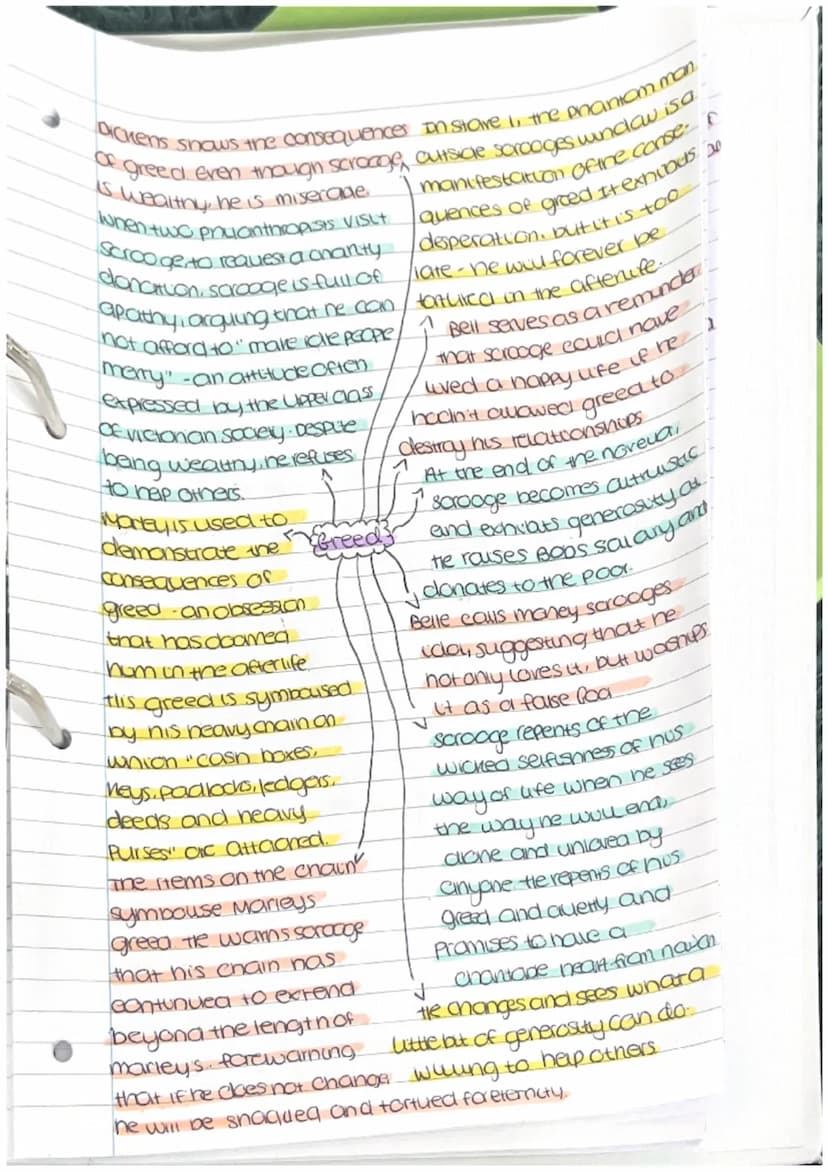 Dickens shows the consequences
of greed even though scrooge
is wealthy, he is miserable.
when two philanthropists visit
scrooge to request a charity
donation, scrooge is full of
apathy, arguing that he can
not afford to "make idle people
merry" - an attitude often
expressed by the upper class
of victorian society. Despite
being wealthy, he refuses
to help others.
Marley is used to
demonstrate the
consequences of
greed - an obsession
that has doomed
him in the afterlife
His greed is symbolised
by his heavy chain on
which "cash boxes,
keys, padlocks, ledgers,
deeds and heavy
purses" are attached.
The items on the chain
symbolise Marleys
greed He warns scrooge
that his chain has
continued to extend
beyond the length of
marley's. forewarning
that if he does not change
he will be shackled and tortued for eternity.
Greed
In stave 1, the phantom man
outside scrooges window is a
manifestation of the conse-
quences of greed It exhibits
desperation. but it is too
late - he will forever be
tortured in the afterlife.
Bell serves as a reminder
that scrooge could have
lived a happy life if he
hadn't allowed greed to
destroy his relationships
At the end of the novella,
scrooge becomes altruistic
and exhibits generosity as
He raises Bobs salary and
donates to the poor.
Belle calls money scrooges
idol, suggesting that he
not only loves it, but worships
it as a false God
scrooge repents of the
wicked selfishness of his
way of life when he sees
the way he will end,
alone and unloved by
anyone. He repents of his
greed and cruelty and
promises to have a
charitable heart from now on
He changes and sees what a
little bit of generosity can do.
willing to help others